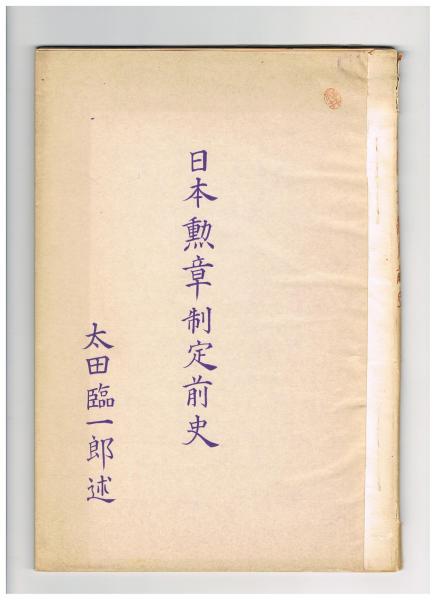 日本勲章制定前史
太田臨一郎述